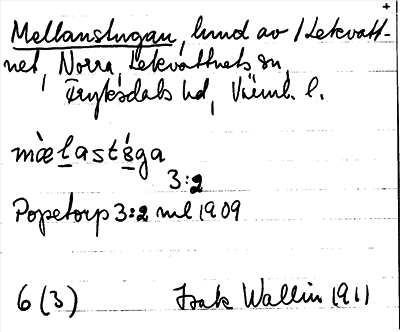 Mellanstugan, lund av / Lekvatt-
net, Norra, Lekvattnets sn,
Fryksdals hd, Värml. l.
mὰlastɞ́ga
3:2
Popetorp 3:2 ml 1909
6 (3) Isak Wallin 1911